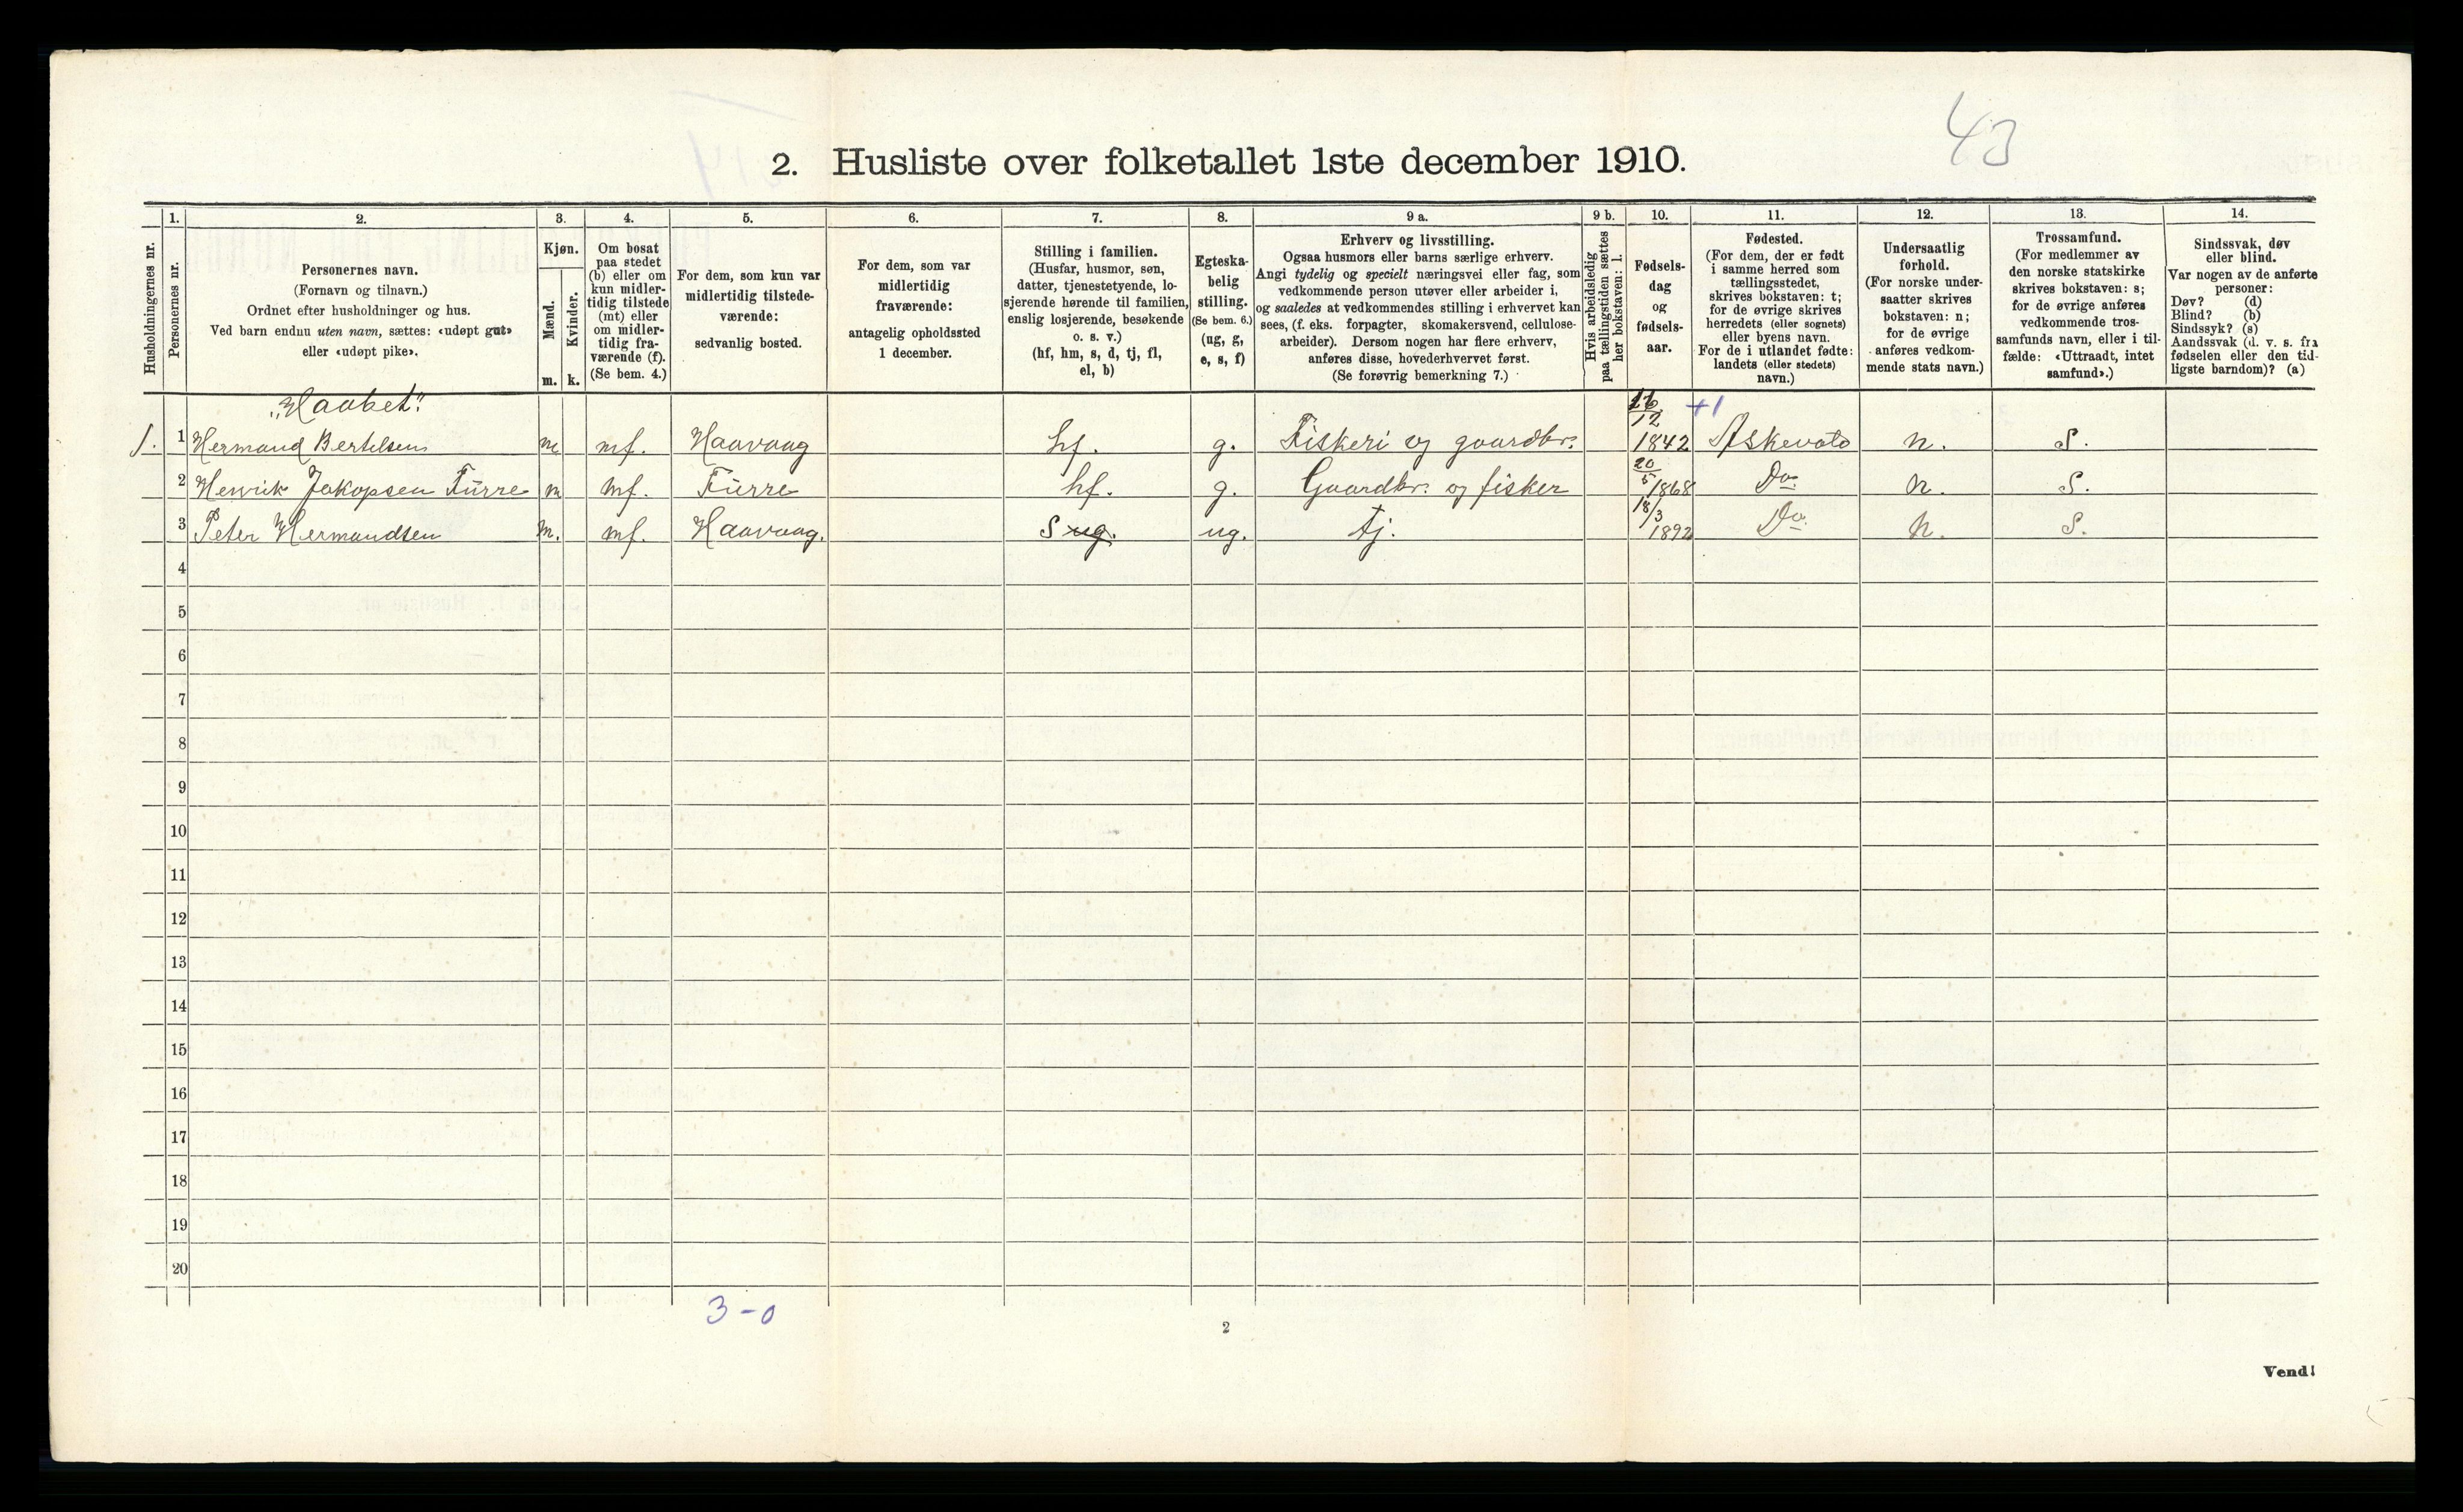 43
2. Husliste over folketallet 1ste december 1910.
Husholdningernes nr.
1.
Personernes nr.
2.
Personernes navn.
(Fornavn og tilnavn.)
Ordnet efter husholdninger og hus.
Ved barn endnu uten navn, sættes: «udøpt gut»
eller «udøpt pike».
3.
Kjøn.
Mænd.
m.
Kvinder.
k.
4.
Om bosat
paa stedet
(b) eller om
kun midler-
tidig tilstede
(mt) eller
om midler-
tidig fra-
værende (f).
(Se bem. 4.)
5.
For dem, som kun var
midlertidig tilstede-
værende:
sedvanlig bosted.
6.
For dem, som var
midlertidig
fraværende:
antagelig opholdssted
1 december.
7.
Stilling i familien.
(Husfar, husmor, søn,
datter, tjenestetyende, lo-
sjerende hørende til familien,
enslig losjerende, besøkende
o. s. v.)
(hf, hm, s, d, tj, fl,
el, b)
8.
Egteska-
belig
stilling.
(Se bem. 6.)
(ug, g,
e, s, f)
9 a.
Erhverv og livsstilling.
Ogsaa husmors eller barns særlige erhverv.
Angi tydelig og specielt næringsvei eller fag, som
vedkommende person utøver eller arbeider i,
og saaledes at vedkommendes stilling i erhvervet kan
sees, (f. eks. forpagter, skomakersvend, cellulose-
arbeider). Dersom nogen har flere erhverv,
anføres disse, hovederhvervet først.
(Se forøvrig bemerkning 7.)
9 b.
Hvis arbeidsledig
paa tællingstiden sættes
her bokstaven: l.
10.
Fødsels-
dag
og
fødsels-
aar.
11.
Fødested.
(For dem, der er født
i samme herred som
tællingsstedet,
skrives bokstaven: t;
for de øvrige skrives
herredets (eller sognets)
eller byens navn.
For de i utlandet fødte:
landets (eller stedets)
navn.)
12.
Undersaatlig
forhold.
(For norske under-
saatter skrives
bokstaven: n;
for de øvrige
anføres vedkom-
mende stats navn.)
13.
Trossamfund.
(For medlemmer av
den norske statskirke
skrives bokstaven: s;
for de øvrige anføres
vedkommende tros-
samfunds navn, eller i til-
fælde: «Uttraadt, intet
samfund».)
14.
Sindssvak, døv
eller blind.
Var nogen av de anførte
personer:
Døv? (d)
Blind? (b)
Sindssyk? (s)
Aandssvak (d. v. s. fra
fødselen eller den tid-
ligste barndom)? (a)
"Haabet"
1. 1 Hermand Bertelsen m mf. Haavaag hf. g. Fiskeri og gaardbr. 12 1842 +1 Askevold n. S.
2 Henrik Jakopsen Fürre m mf. Fürre hf. g. Gaardbr. og fisker 20/5 1868 Do n. S.
3 Peter Hermandsen m. mf. Haavaag. S ug. ug. tj. 18/3 1892 Do n. S.
4
5
6
7
8
9
10
11
12
13
14
15
16
17
18
19
20
3-0
2
Vend!